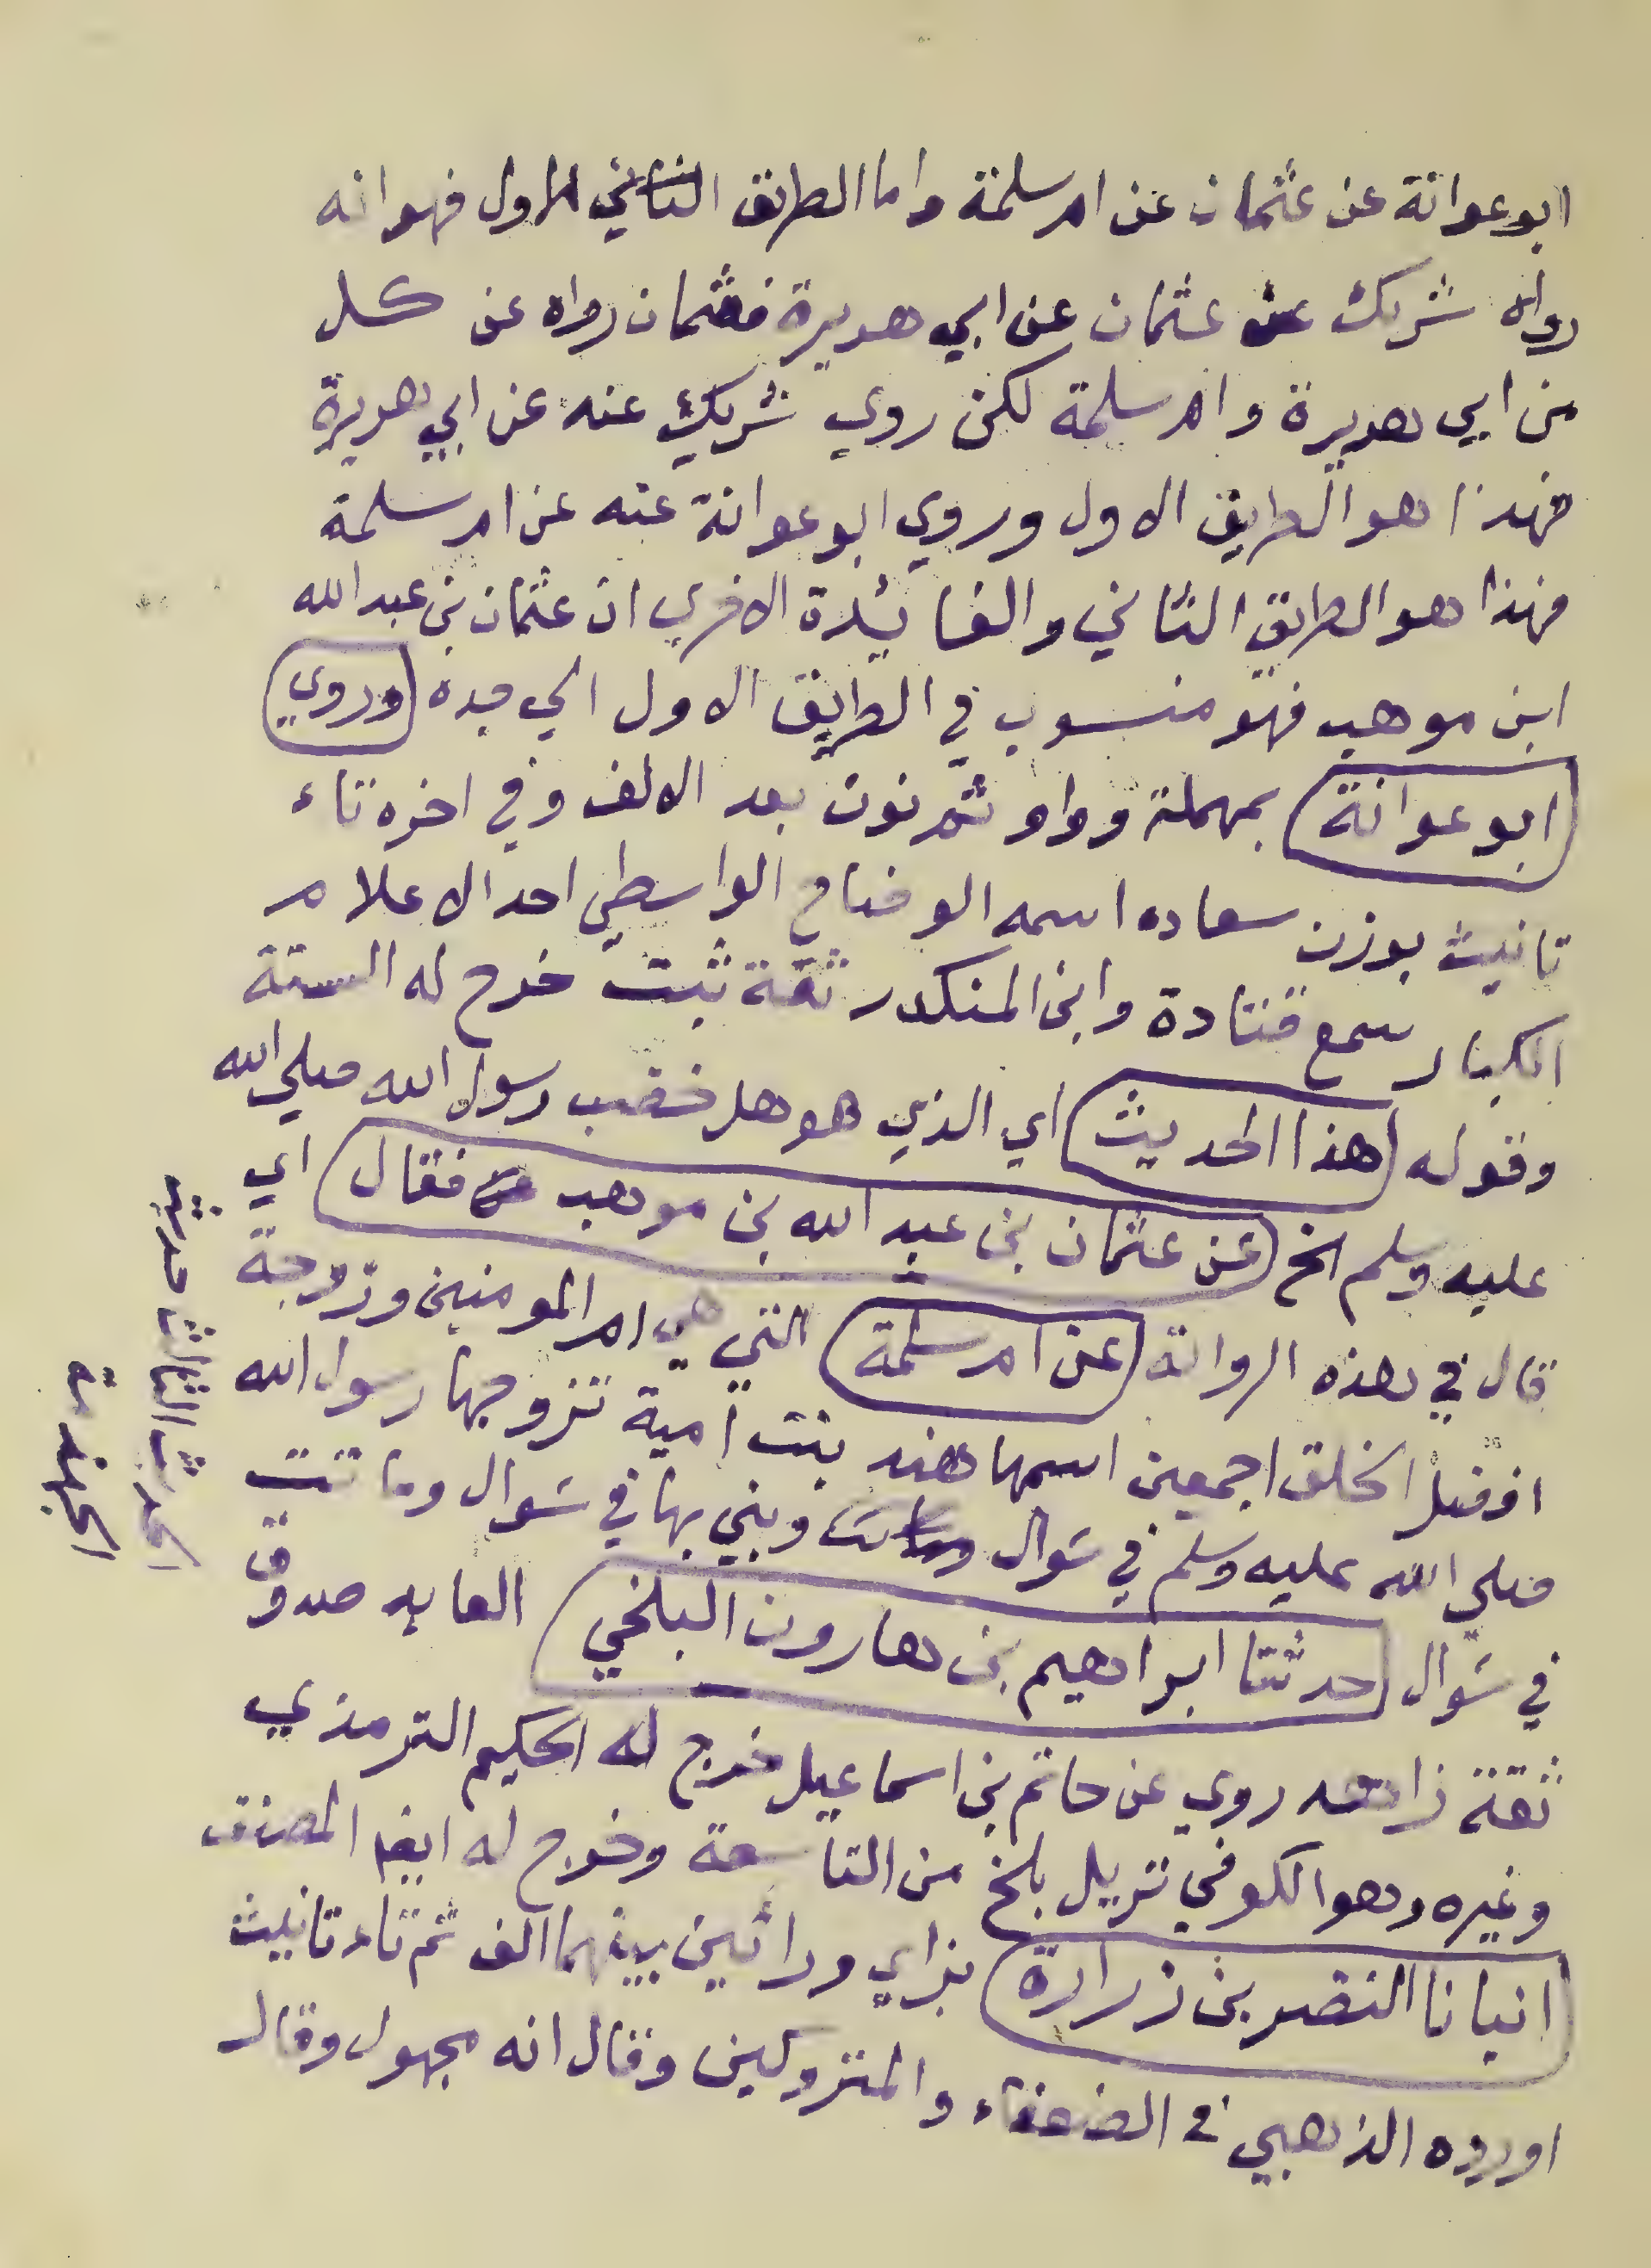 ابو عوانة عن عثمان عن ام سلمة واما الطريق الثاني الاول فهو انه
رواه شريك عن عثمان عن ابي هريرة فعثمان رواه عن كل
من ابي هريرة وام سلمة لكن روي شريك عنه عن ابي هريرة
فهذا هو الطريق الاول وروي ابو عوانة عنه عن ام سلمة
فهذا هو الطريق الثاني والفائدة الاخري ان عثمان بن عبد الله
ابن موهب فهو منسوب في الطريق الاول الي جده وروي
ابو عوانة بمهملة وواو ثم نون بعد الالف وفي اخره تاء
تانيث بوزن سعاده اسمه الوضاح الواسطي احد الاعلام
الكبار سمع قتادة وابن المنكدر ثقة ثبت خرج له الستة
وقوله هذا الحديث اي الذي هو هل خضب رسول الله صلي الله
عليه وسلم الخ عن عثمان بن عبد الله بن موهب فقال اي
قال في هذه الرواية عن ام سلمة التي هي ام المومنين وزوجة
افضل الخلق اجمعين اسمها هند بنت امية تزوجها رسول الله
صلي الله عليه وسلم في شوال وبني بها في شوال وماتت
في شوال حدثنا ابراهيم بن هارون البلخي العابد صدوق
ثقة زاهد روي عن حاتم بن اسماعيل خرج له الحكيم الترمذي
وغيره وهو الكوفي نزيل بلخ من التاسعة وخرج له ايضا المصنف
انبانا النضر بن زرارة بزاي ورائين بينهما الف ثم تاء تانيث
اورده الذهبي في الضعفاء والمتروكين وقال انه مجهول وقال
الحديث الثالث حديث
الجهذمة